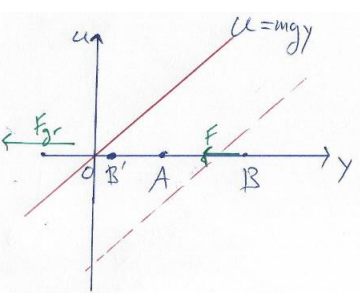 u
U=mgy
Fgr
F
O B' A B y